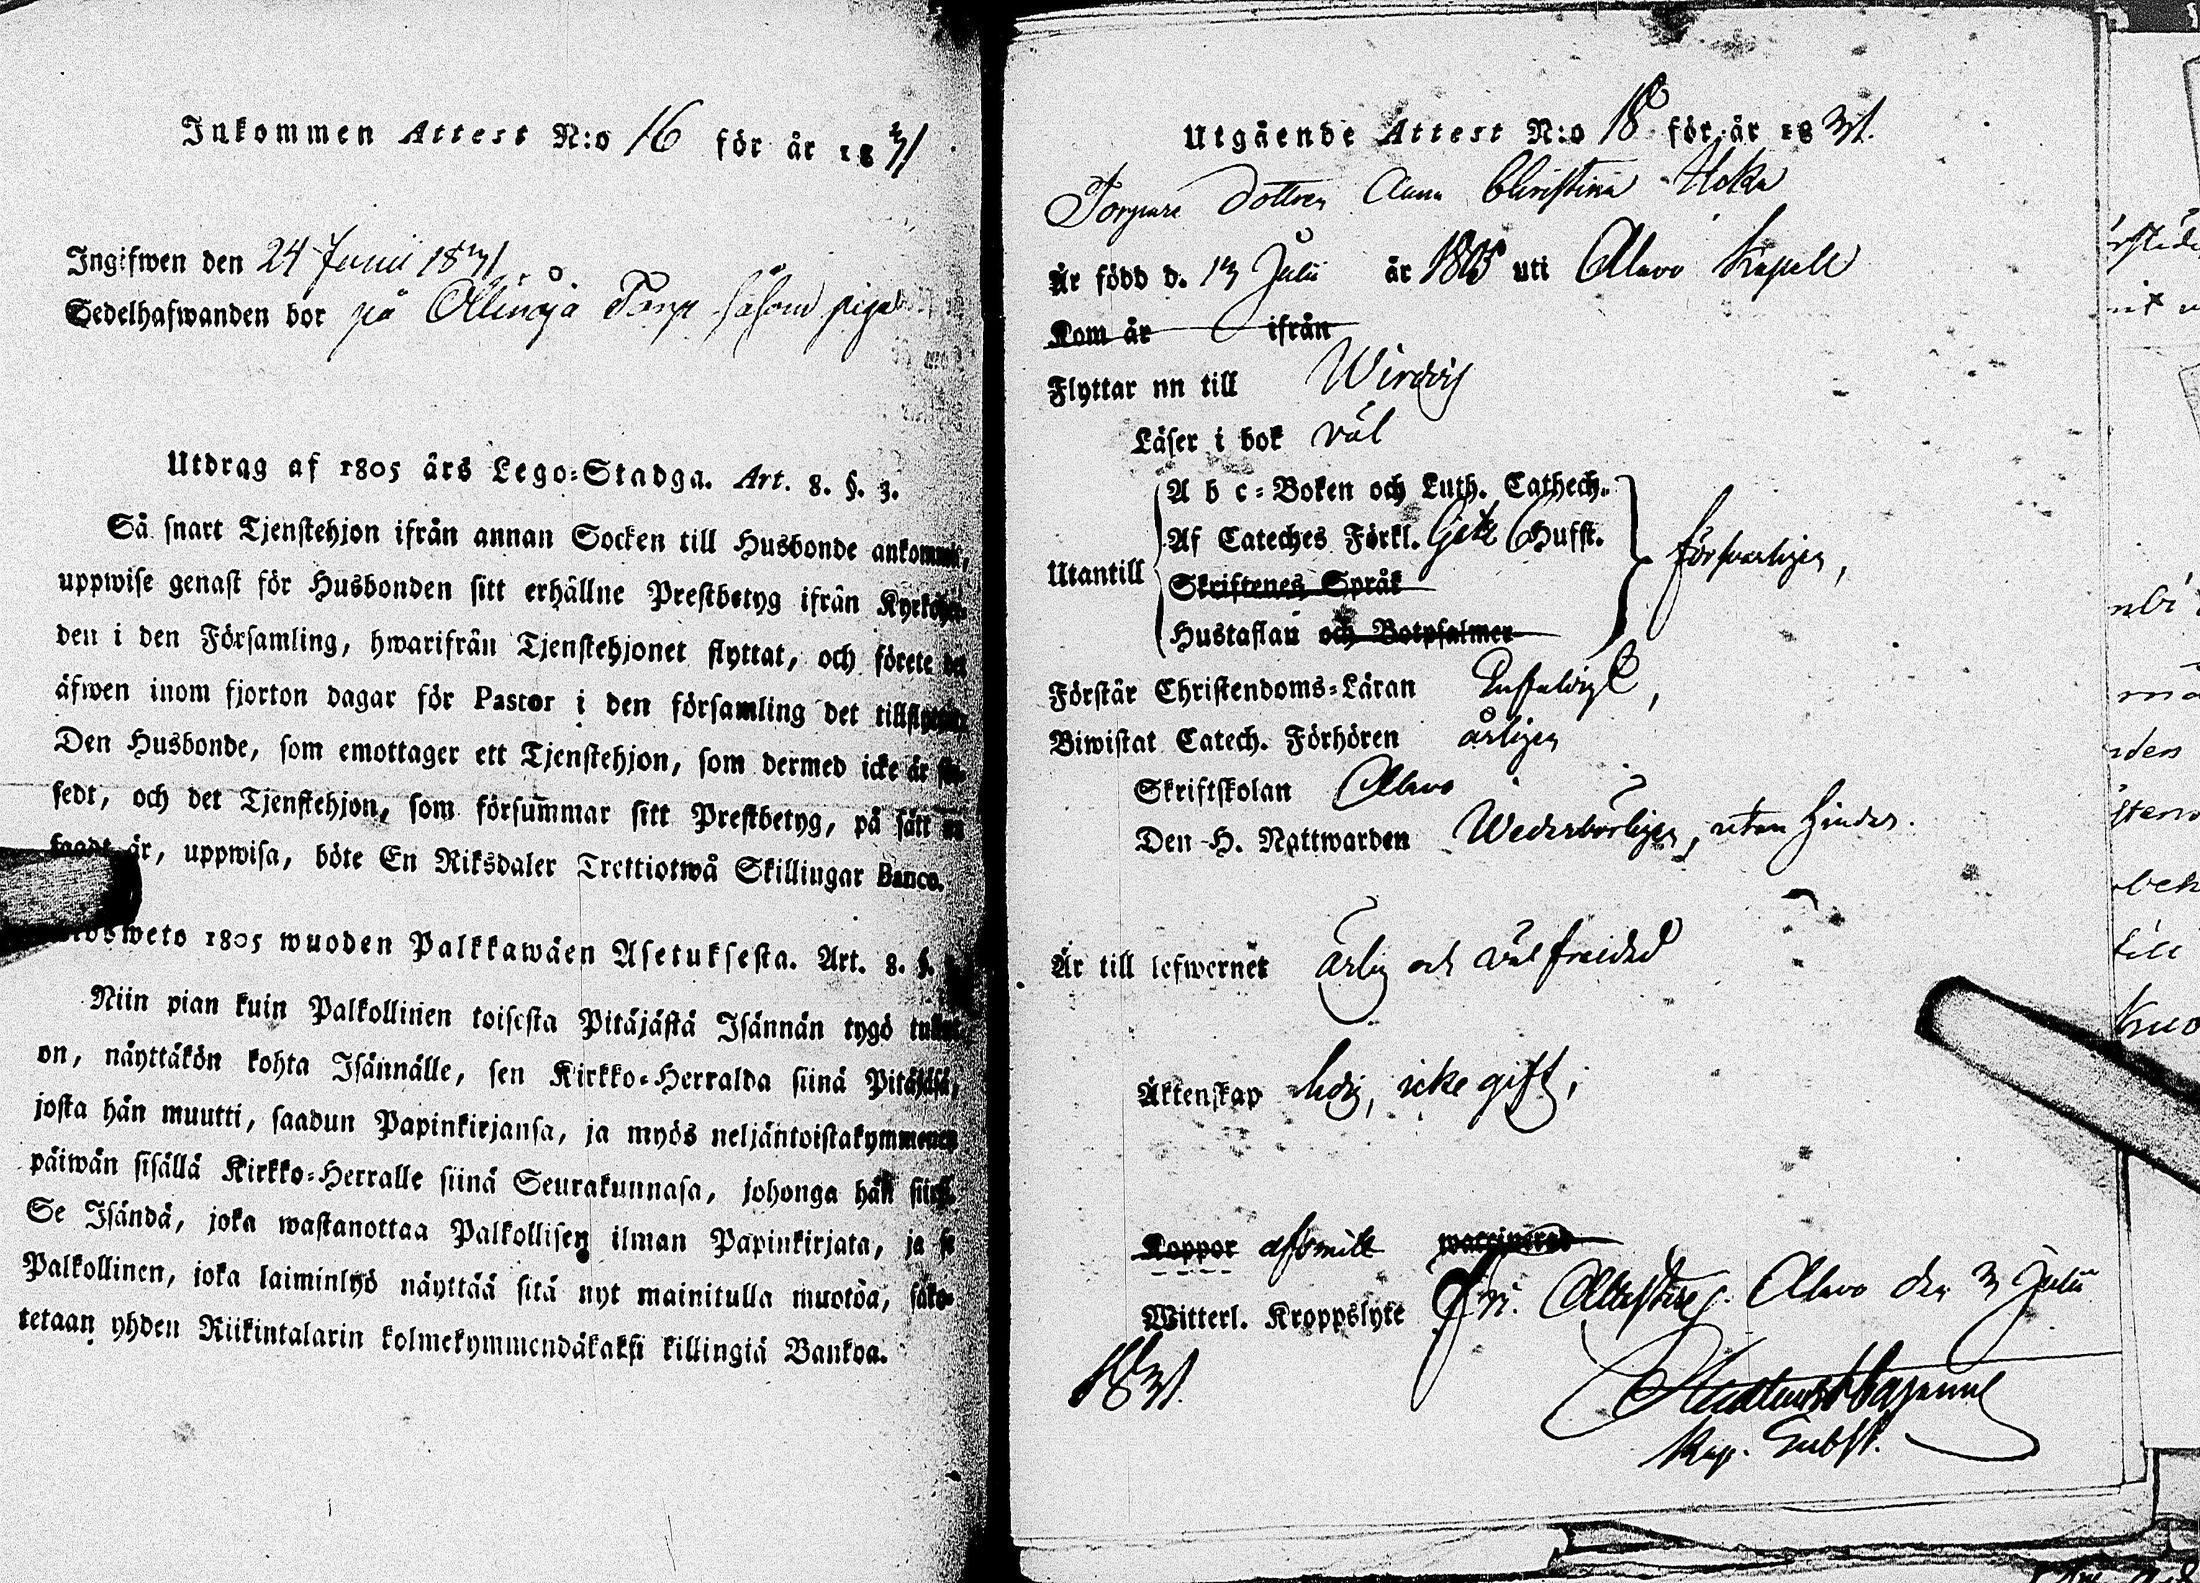 Inkommen Attest N:o 16 för år 1831
Ingifwen den 24 Junii 1831
Sedelhafwanden bor på Torp såsom piga
Utdrag af 1805 års Lego-Stadga. Art. 8. §. 3.
Så snart Tjenstehjon ifrån annan Socken till Husbonde ankommit,
uppwise genast för Husbonden sitt erhållne Prestbetyg ifrån
den i den Församling, hwarifrån Tjenstehjonet flyttat, och förete det
äfwen inom fjorton dagar för Pastor i den församling det
Den Husbonde, som emottager ett Tjenstehjon, som dermed icke är
sedt, och det Tjenstehjon, som försummar sitt Prestbetyg, på sätt
är, uppwisa, böte En Riksdaler Trettiotwå Skillingar Banco.
1805 wuoden Palkkawäen Asetuksesta. Art. 8. §.
Niin pian kuin Palkollinen toisesta Pitäjästä Isännän tygö
on, näyttäkön kohta Isännälle, sen Kirkko-Herralda siinä Pitäjäsä,
josta hän muutti, saadun Papinkirjansa, ja myös neljäntoistakymmenen
päiwän sisällä Kirkko-Herralle siinä Seurakunnasa, johonga hän
Se Isändä, joka wastanottaa Palkollisen ilman Papinkirjata, ja se
Palkollinen, joka laiminlyö näyttää sitä nyt mainitulla muotoa, sako-
tetaan yhden Riikintalarin kolmekymmendäkaksi killingiä Bankoa.
Utgående Attest N:o 18 för år 1831.
Torpare Dottren Anna Christina
Är född d. 13 Julii år 1805 uti Alavo Kapell
Kom år ifrån
Flyttar nu till Wirdois
Läser i bok väl
A b c-Boken och Luth. Cathech.
Af Cateches Förkl. Hufst.
Utantill försvarligen,
Skriftenes Språk
Hustaflan och Botpsalmer
Förstår Christendoms-Läran Enfaldigt,
Biwistat Catech. Förhören årligen
Skriftskolan Alavo
Den H. Nattwarden Wederbörligen, utan hinder.
Är till lefwernet ärlig och väl frejdad
Äktenskap ledig, icke gift,
Koppor afsmitt waccinerad
Witterl. Kroppslyte fri. Attesterar. Alavo den 3 Julii
1831.
Kap. Subst.